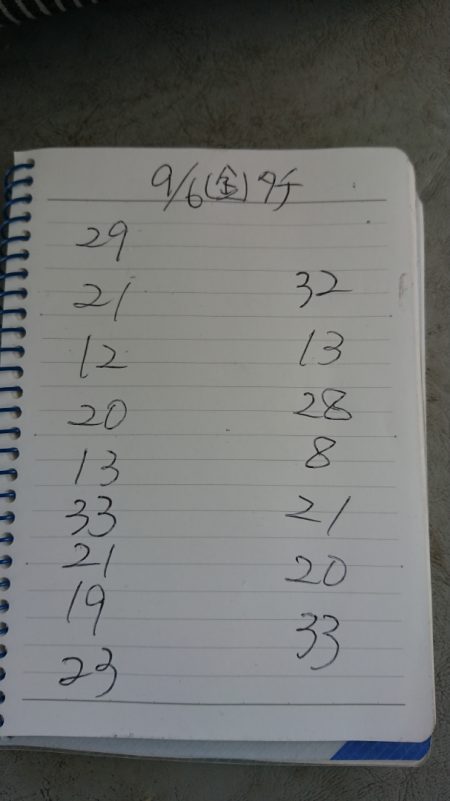 9/6(金)タチ
29
21 32
12 13
20 28
13 8
33 21
21 20
19 33
23